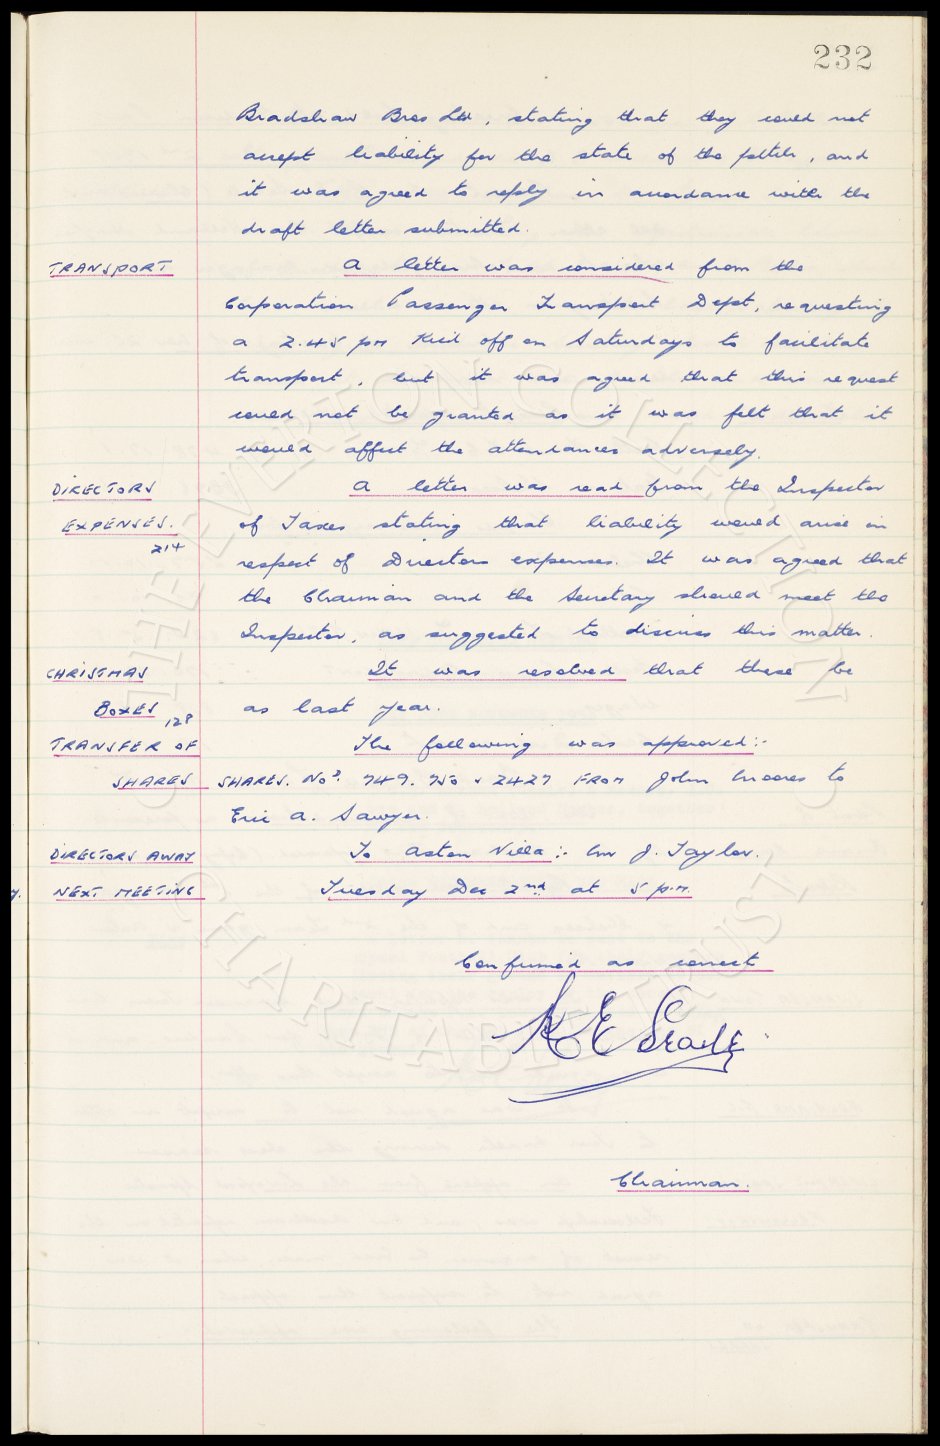 232
Bradshaw Bros Ltd, stating that they could not
accept liability for the state of the pitch, and
it was agreed to reply in accordance with the
draft letter submitted.
TRANSPORT A letter was considered from the
Corporation Passenger Transport Dept, requesting
a 2.45 pm Kick off on Saturdays to facilitate
transport, but it was agreed that this request
could not be granted as it was felt that it
would affect the attendances adversely.
DIRECTORS A letter was read from the Inspector
EXPENSES. of Taxes stating that liability would arise in
214 respect of Directors expenses. It was agreed that
the Chairman and the Secretary should meet the
Inspector, as suggested to discuss this matter.
CHRISTMAS It was resolved that these be
BOXES 128 as last year.
TRANSFER OF The following was approved:-
SHARES SHARES. Nos. 749. 750 & 2427 FROM John Moores to
Eric A. Sawyer.
DIRECTORS AWAY To Aston Villa:- Mr J. Taylor.
NEXT MEETING Tuesday Dec 2nd at 5 p.m.
Confirmed as correct
Chairman.
THE EVERTON COLLECTION
CHARITABLE TRUST